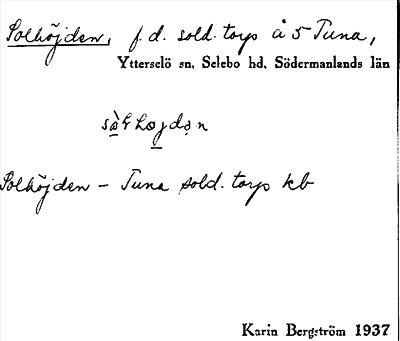 Solhöjden, f.d. sold. torp å 5 Tuna,
Ytterselö sn, Selebo hd, Södermanlands län
Solhöjden – Tuna sold. torp kb
Karin Bergström 1937